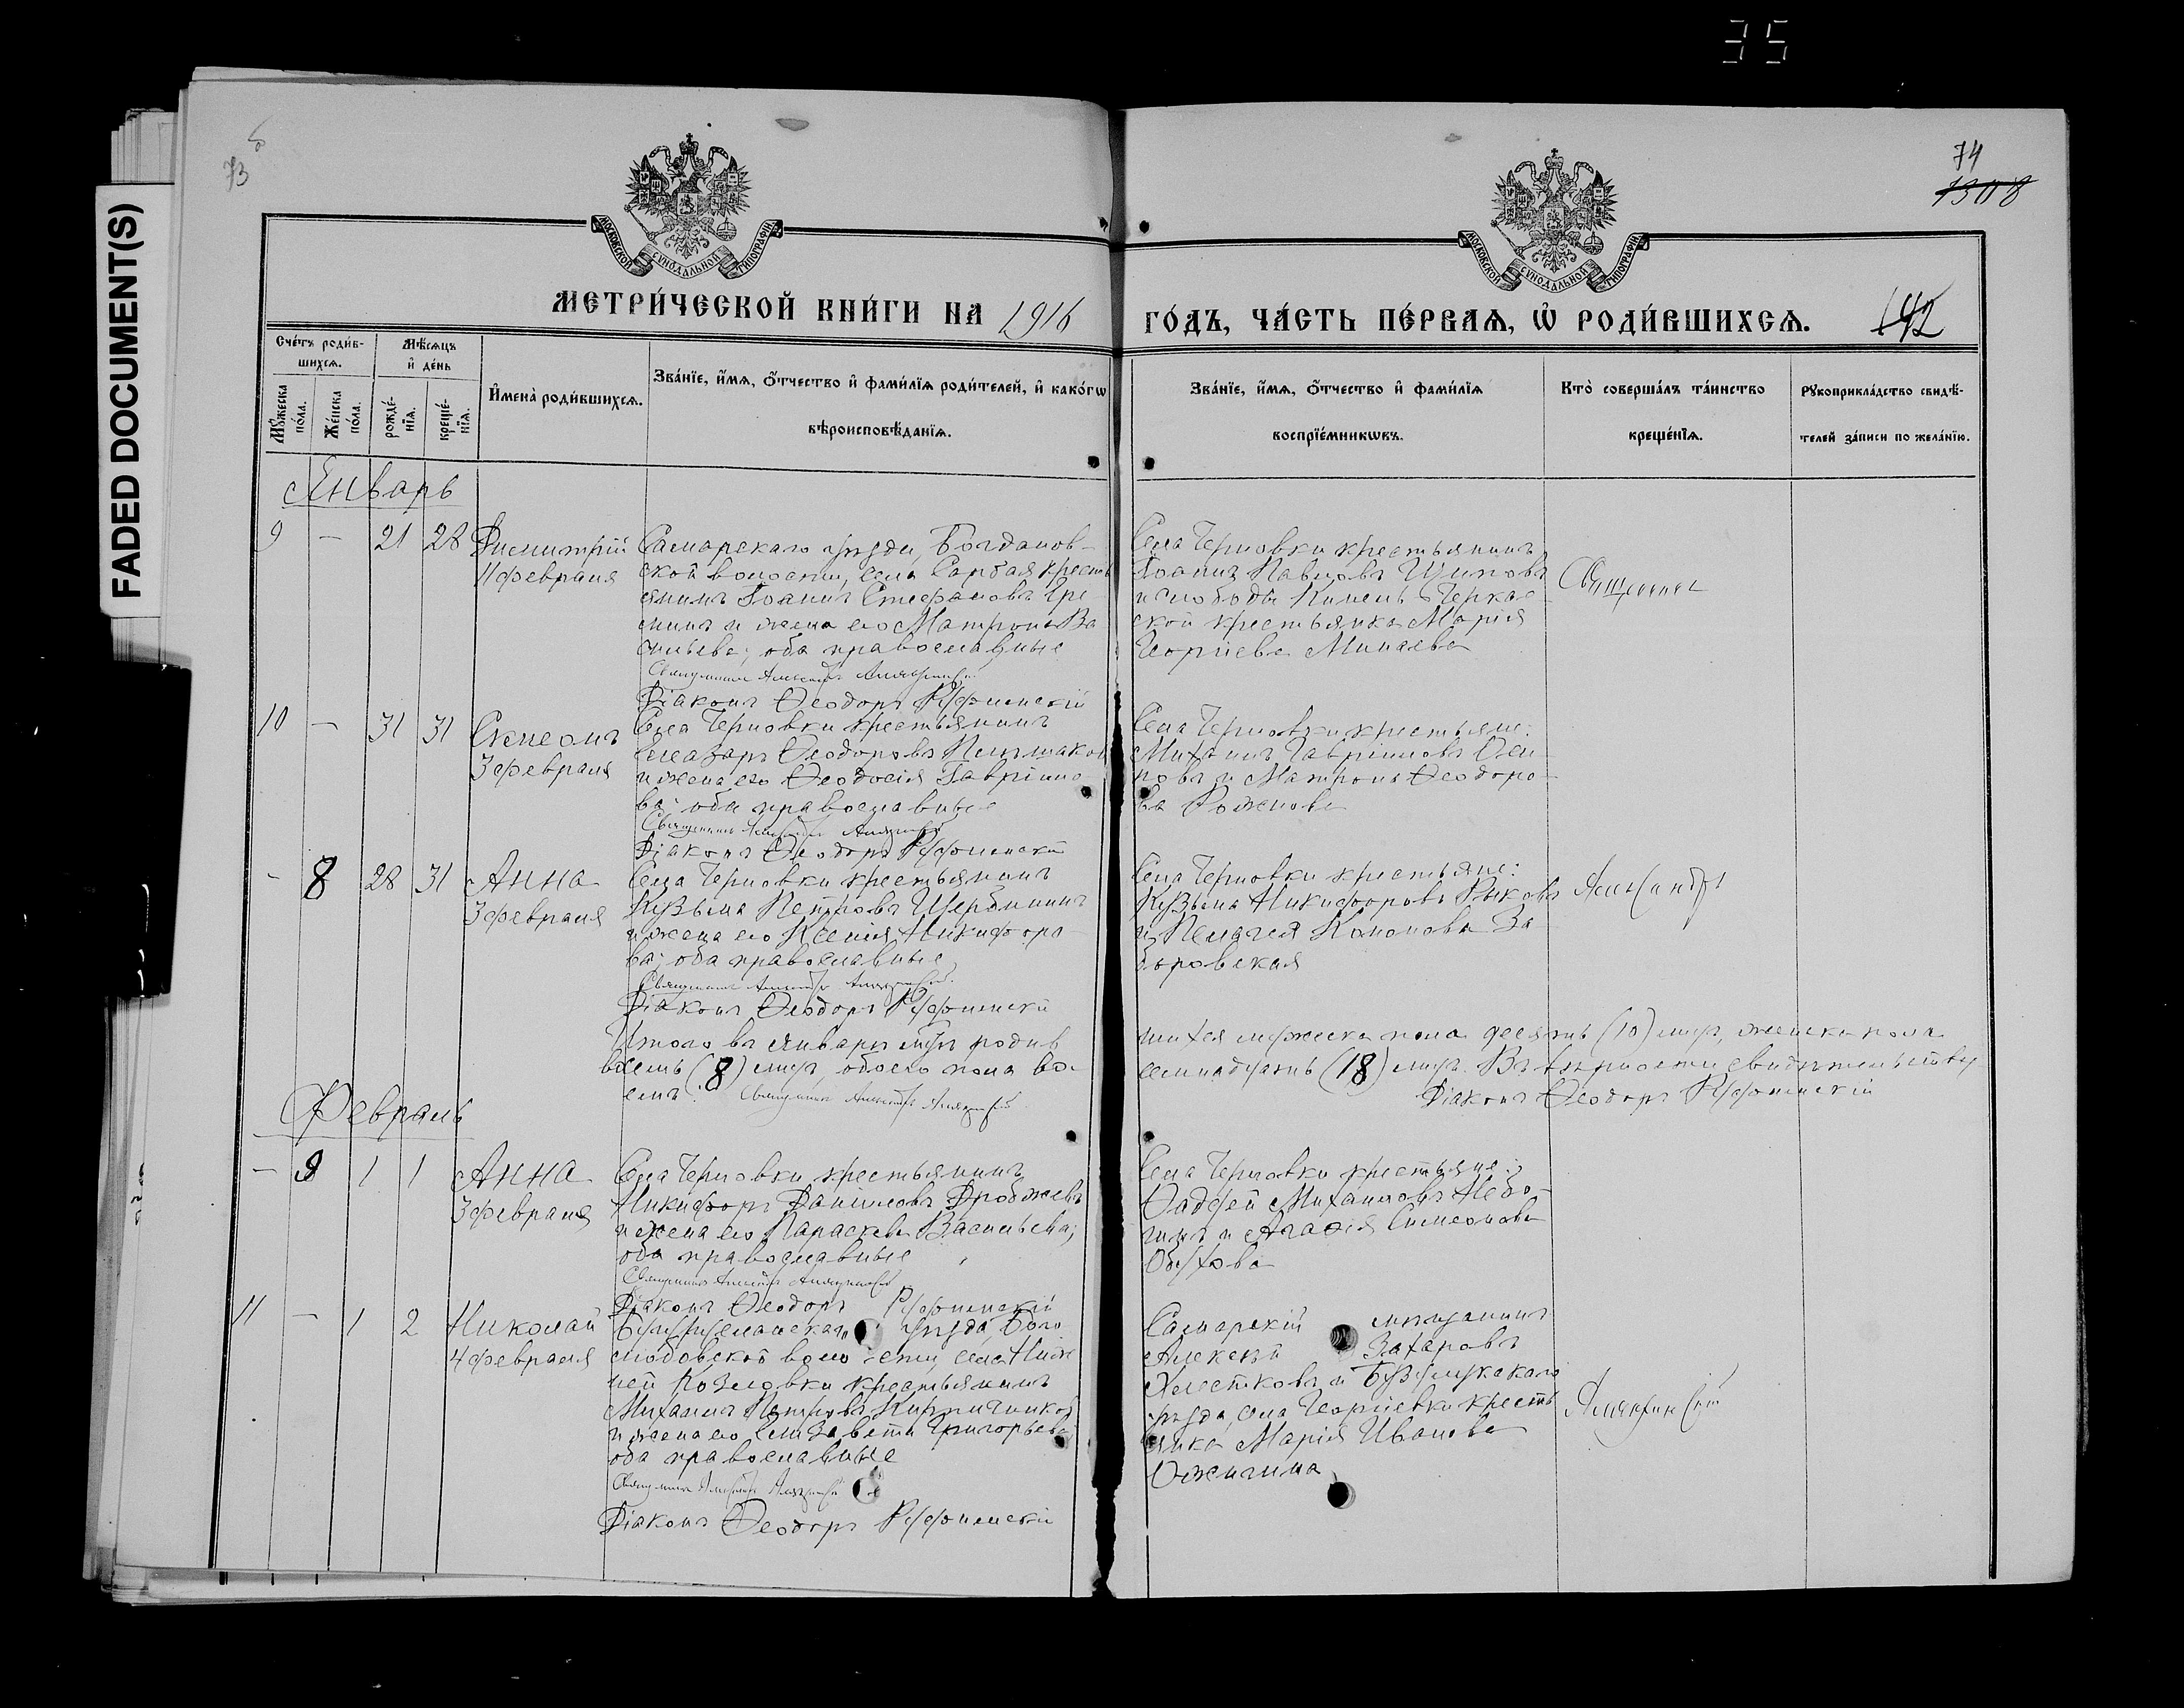 35
FADED DOCUMENT(S)
73
74
1308
МОСКОВСКОЙ СѴНОДАЛЬНОЙ ТИПОГРАФІИ
МОСКОВСКОЙ СѴНОДАЛЬНОЙ ТИПОГРАФІИ
МЕТРИ́ЧЕСКОЙ КНИ́ГИ НА 1916
ГО́ДЪ, ЧА́СТЬ ПЕ́РВАѦ, Ѡ҆ РОДИ́ВШИХСѦ. 142
Сче́тъ роди́вшихсѧ.
Мꙋ́жеска по́ла.
Же́нска по́ла.
Мѣ́сѧцъ и҆ де́нь
рожде́нїѧ.
креще́нїѧ.
И҆мена̀ роди́вшихсѧ.
Зва́нїе, и҆́мѧ, ѻ҆́тчество и҆ фами́лїѧ роди́телей, и҆ како́гѡ
вѣроисповѣ́данїѧ.
Зва́нїе, и҆́мѧ, ѻ҆́тчество и҆ фами́лїѧ
воспрїе́мникѡвъ.
Кто̀ соверша́лъ та́инство
креще́нїѧ.
Рꙋкоприкла́дство свидѣ́-
телей за́писи по жела́нїю.
Январь
9 — 21 28 Димитрій
11 февраля
Самарскаго уѣзда, Богданов-
ской волости, села Сарбая кресть
янинъ Іоаннъ Стефановъ Гре
и жена его Матрона Ва
сильева; оба православные
Священникъ Александръ
Діаконъ Ѳеодоръ
Села Черновки крестьянинъ
Іоаннъ Павловъ
и слободы Кинель-Черкас
ской крестьянка Марія
Георгіева Минаева
Священникъ
10 — 31 31 Симеонъ
3 февраля
Села Черновки крестьянинъ
Елеазаръ Ѳеодоровъ
и жена его Ѳеодосія Гавріило
ва; оба православные
Священникъ Александръ
Діаконъ Ѳеодоръ
Села Черновки крестьяне:
Михаилъ Гавріиловъ Оси
повъ и Матрона Ѳеодоро
ва Рожнова
- 8 28 31 Анна
3 февраля
Села Черновки крестьянинъ
Кузьма Петровъ Щербининъ
и жена его Ксенія Никифоро
ва; оба православные
Священникъ Александръ
Діаконъ Ѳеодоръ
Села Черновки крестьяне:
Кузьма Никифоровъ Рыковъ
и Пелагея Кононова За
боровская
Александръ
Итого въ январѣ м-цѣ родив
шихся мужеска пола десять (10) лицъ, женска пола
восемь (8) лицъ, обоего пола во-
семнадцать (18) лицъ. Въ вѣрности свидѣтельствую
Священникъ Александръ
Діаконъ Ѳеодоръ
Февраль
— 9 1 1 Анна
3 февраля
Села Черновки крестьянинъ
Никифоръ Даніиловъ
и жена его Параскева Васильева;
оба православные
Священникъ Александръ
Діаконъ Ѳеодоръ
Села Черновки крестьяне:
Ѳаддей Михаиловъ
и Агаѳія Симеонова
Обухова
11 — 1 2 Николай
4 февраля
Бугурусланскаго уѣзда, Бого
любовской волости, села Ниж
ней Козловки крестьянинъ
Михаилъ Петровъ Кирпичниковъ
и жена его Елизавета Григорьева
оба православные
Священникъ Александръ
Діаконъ Ѳеодоръ
Самарскій мѣщанинъ
Алексѣй Захаровъ
Хлестковъ и Бузулукскаго
уѣзда, села Георгіевки кресть
янка Марія Иванова
Ожигина